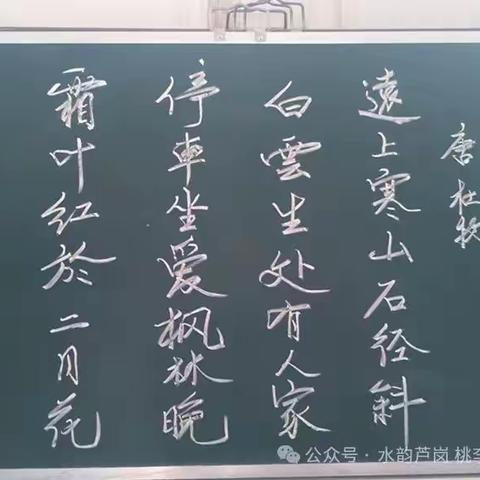 唐杜牧
遠上寒山石径斜
白雲生处有人家
停車坐爱枫林晚
霜叶红於二月花
公众号·水韵芦岗 桃李